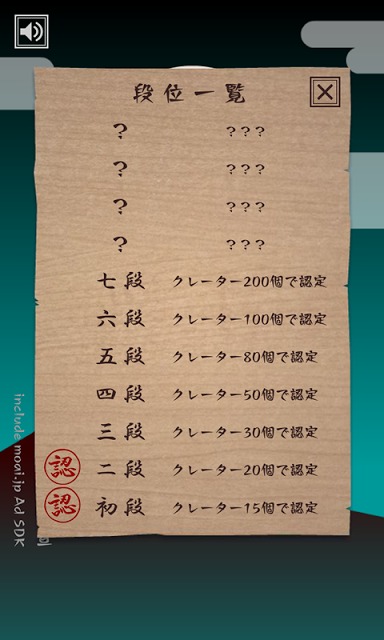 段位一覧
? ???
? ???
? ???
? ???
七段 クレーター200個で認定
六段 クレーター100個で認定
五段 クレーター80個で認定
四段 クレーター50個で認定
三段 クレーター30個で認定
認 二段 クレーター20個で認定
認 初段 クレーター15個で認定
include moai.jp Ad SDK